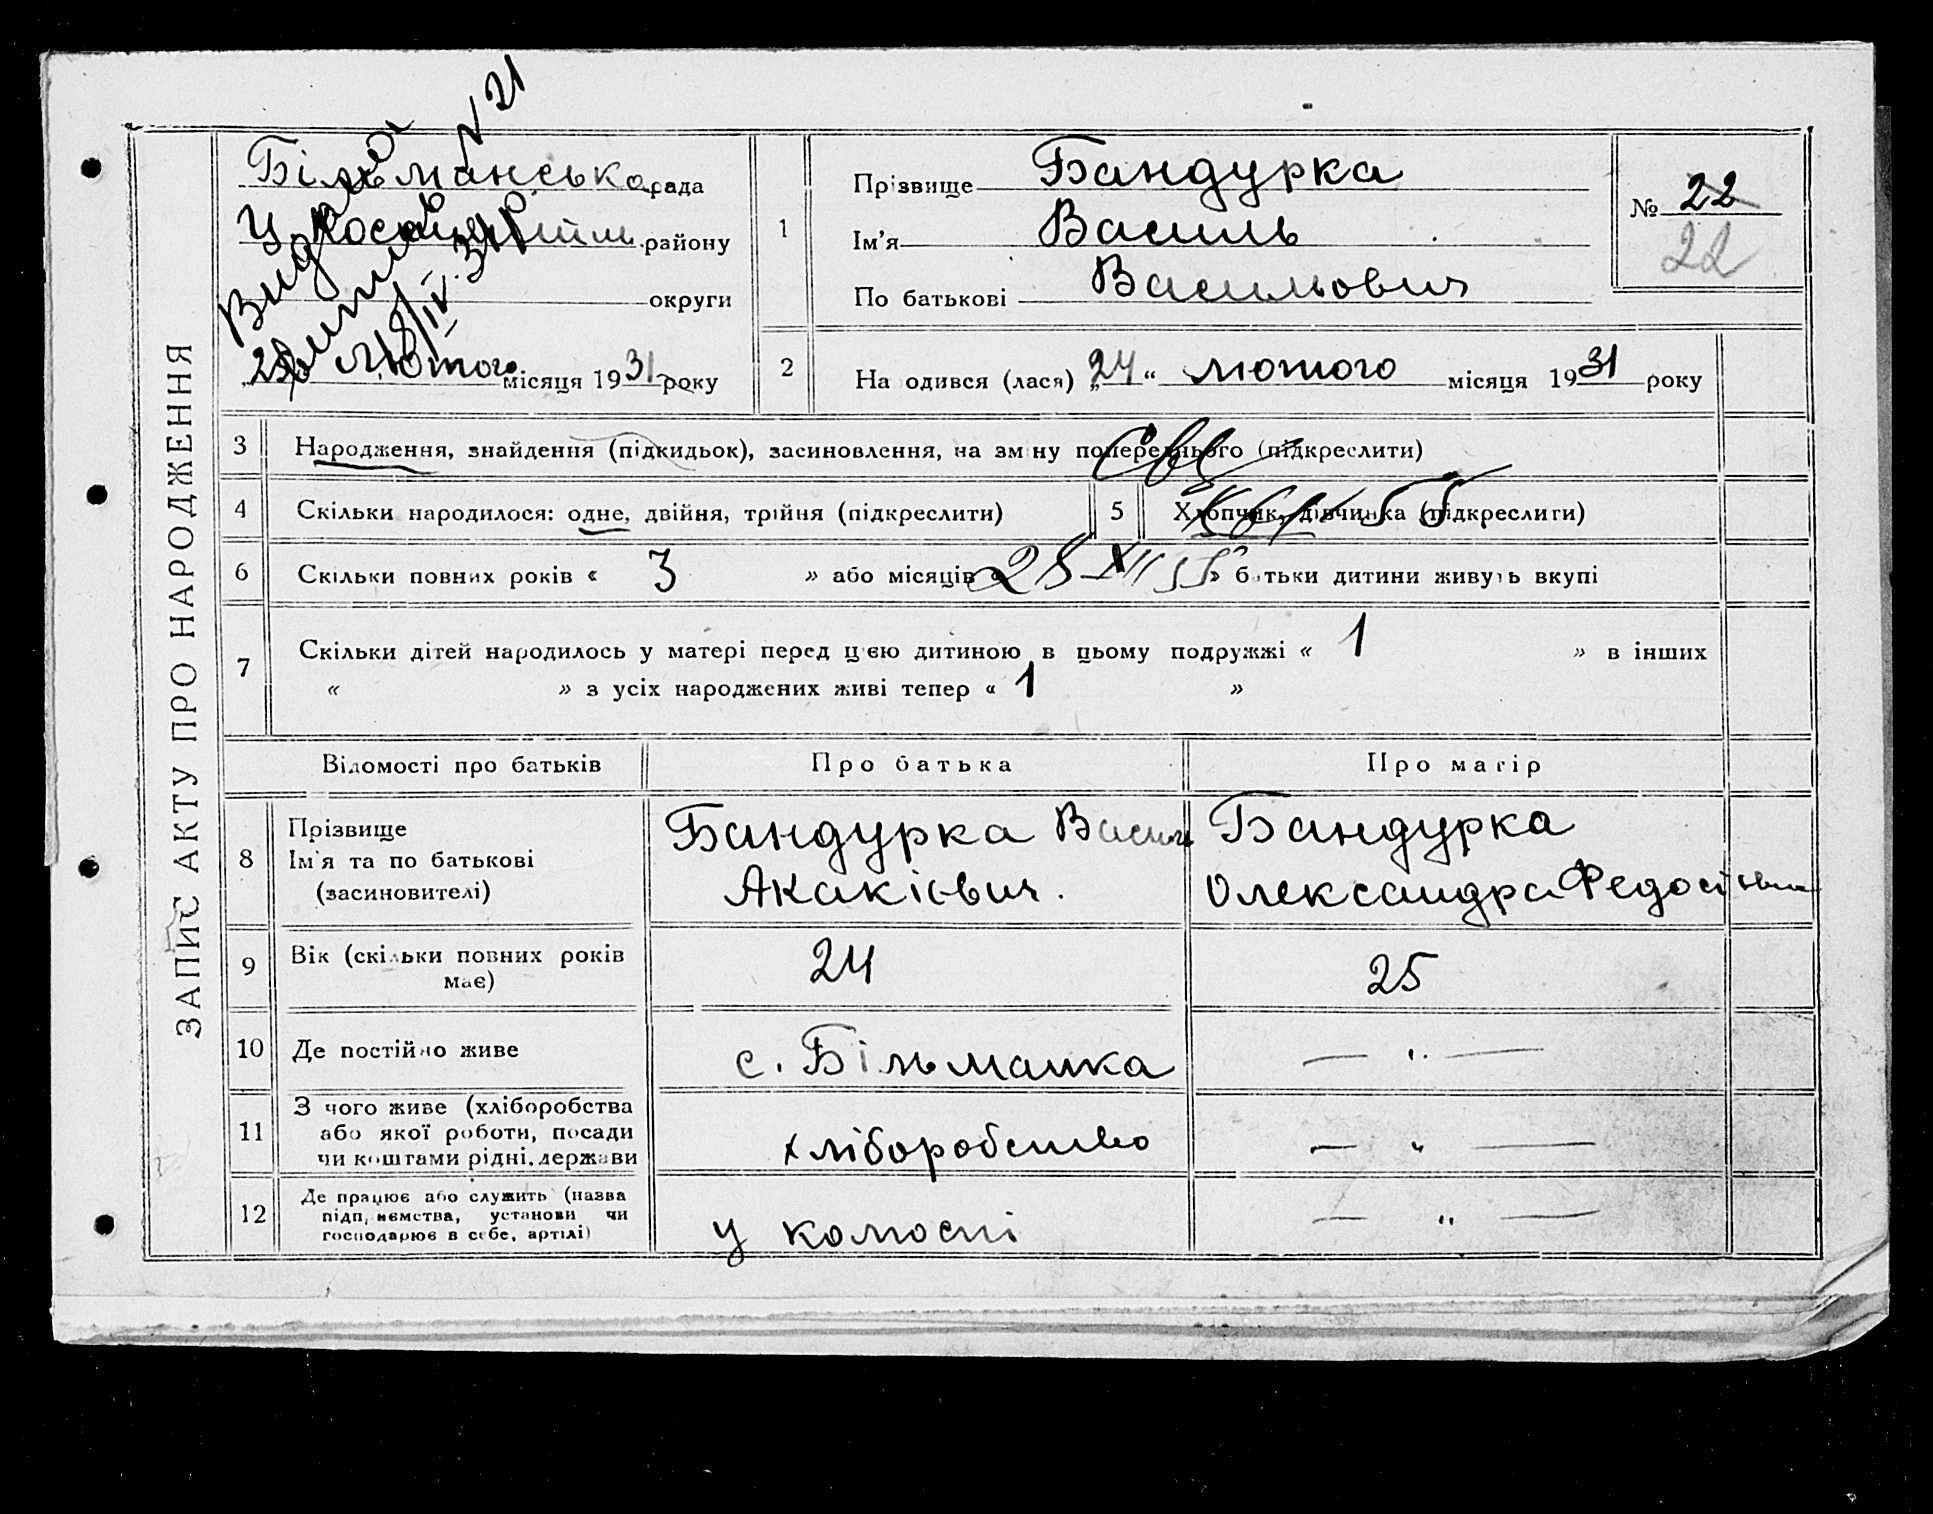 ЗАПИС АКТУ ПРО НАРОДЖЕННЯ
Більманська рада
району
округи
Видана
№ 21
18/IV.34 р
28 лютого місяця 1931 року
1
Прізвище Бандурка
Ім'я Василь
По батькові Васильович
№ 22
22
2
На одився (лася) „24“ лютого місяця 1931 року
3
Народження, знайдення (підкидьок), засиновлення, на зм ну попереднього (підкреслити)
4
Скільки народилося: одне, двійня, трійня (підкреслити)
5
Хлопчик, дівчинка (підкреслити)
6
Скільки повних років « 3 » або місяців « » батьки дитини живуть вкупі
28 XII 55
7
Скільки дітей народилось у матері перед цією дитиною в цьому подружжі « 1 » в інших
« » з усіх народжених живі тепер « 1 »
Відомості про батьків
Про батька
Про матір
8
Прізвище
Ім'я та по батькові
(засиновителі)
Бандурка Василь
Акакієвич.
Бандурка
Олександра Федосіївна
9
Вік (скільки повних років
має)
24
25
10
Де постійно живе
с. Більманка
— " —
11
З чого живе (хліборобства
або якої роботи, посади
чи коштами рідні, держави
хліборобство
— " —
12
Де працює або служить (назва
підприємства, установи чи
господарює в себе, артілі)
у комоспі
— " —